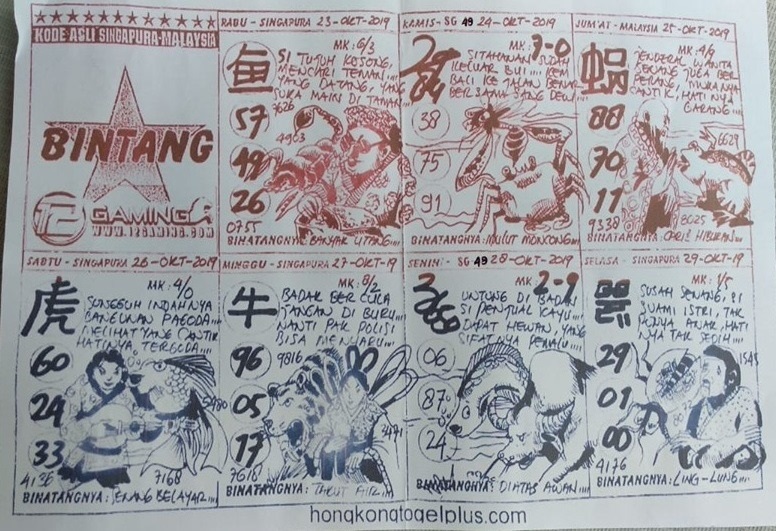 KODE ASLI SINGAPURA-MALAYSIA
BINTANG
12 GAMING
WWW.12GAMING.COM
RABU - SINGAPURA 23-OKT-2019
MK: 6/3
魚
SI TUJUH KOSONG,
MENCARI TEMAN...
YANG DATANG, YANG
SUKA MAIN DI TAMAN...
7626
4903
57
49
26
0755
BINATANGNYA: BANYAK UTANG...
KAMIS - SG 49 24-OKT-2019
MK: 7-0
SITAHANAN SUDAH
KELUAR BUI... KEM
BALI KE JALAN BENAR
BERSAMA SANG DEWI...
38
75
91
BINATANGNYA: MULUT MONCONG...
JUM'AT - MALAYSIA 25-OKT-2019
MK: 9/9
JENDERAL WANITA
CANTIK, HATI NYA
GARANG...
88
70
11
6629
9338
8025
BINATANGNYA: HIBURAN...
SABTU - SINGAPURA 26-OKT-2019
MK: 4/0
虎
SUNGGUH INDAHNYA
BANGUNAN PAGODA...
MELIHAT YANG CANTIK
HATINYA, TERGODA...
60
24
33
5480
4136
7168
BINATANGNYA: SENANG BELAYAR...
MINGGU - SINGAPURA 27-OKT-19
MK: 8/2
牛
BADAK BER CULA
JANGAN DI BURU...
NANTI PAK POLISI
BISA
9816
96
05
17
3471
7618
BINATANGNYA: TAKUT AIR...
SENIN - SG 49 28-OKT-2019
MK: 2-9
UNTUNG DI BADAN
SI PENJUAL KAYU...
DAPAT HEWAN, YANG
SIFATNYA PEMALU...
06
87
24
BINATANGNYA: DIATAS AWAN...
SELASA - SINGAPURA 29-OKT-19
MK: 1/5
SUSAH SENANG, SI
SUAMI ISTRI, TAK
PUNYA ANAK, HATI
NYA TAK SEDIH...
29
01
00
4176
BINATANGNYA: LING-LUNG...
hongkongtogelplus.com